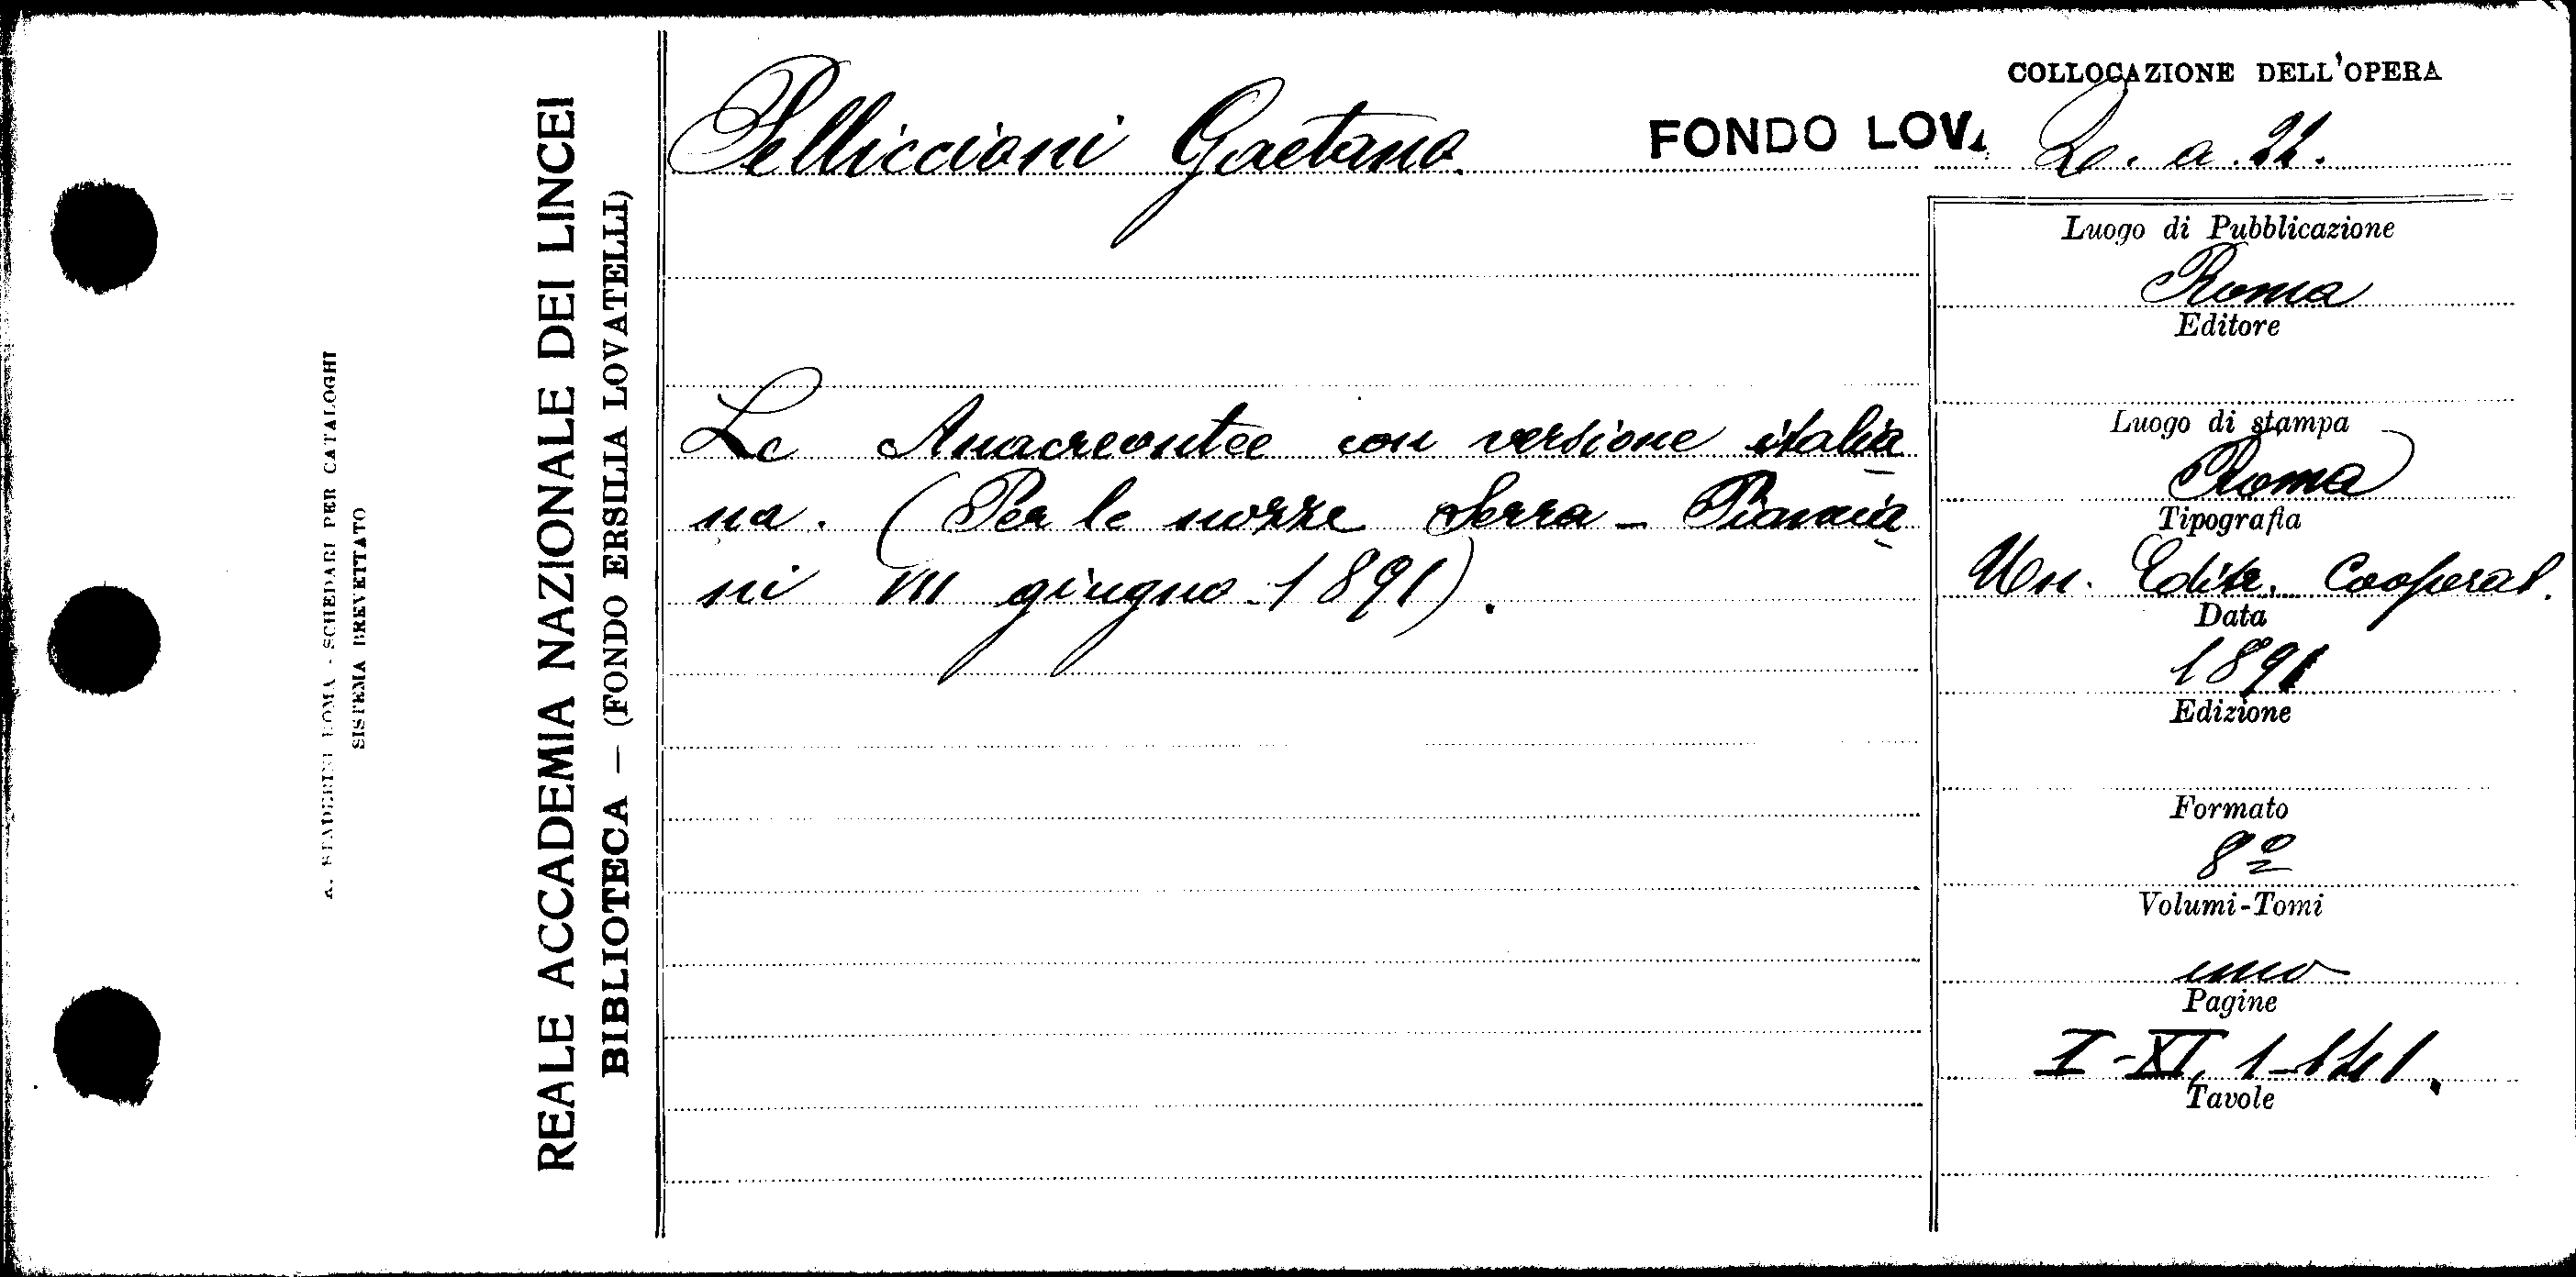 A. STADERINI ROMA - SCHEDARI PER CATALOGHI
SISTEMA BREVETTATO
REALE ACCADEMIA NAZIONALE DEI LINCEI
BIBLIOTECA — (FONDO ERSILIA LOVATELLI)
Pelliccioni Gaetano.
FONDO LOV.
COLLOCAZIONE DELL'OPERA
a. 22.
Le Anacreontee con versione italia
na. (Per le nozze Serra - Piancia
ni VII giugno 1891).
Luogo di Pubblicazione
Roma
Editore
Luogo di stampa
Roma
Tipografia
Un. Edit. Cooperat.
Data
1891
Edizione
Formato
8º
Volumi-Tomi
uno
Pagine
I-XI, 1-141.
Tavole